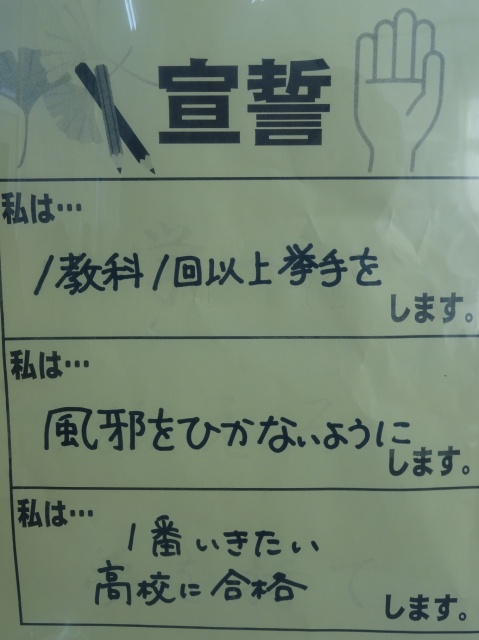 宣誓
私は…
1教科1回以上挙手を
します。
私は…
風邪をひかないように
します。
私は…
1番いきたい
高校に合格
します。